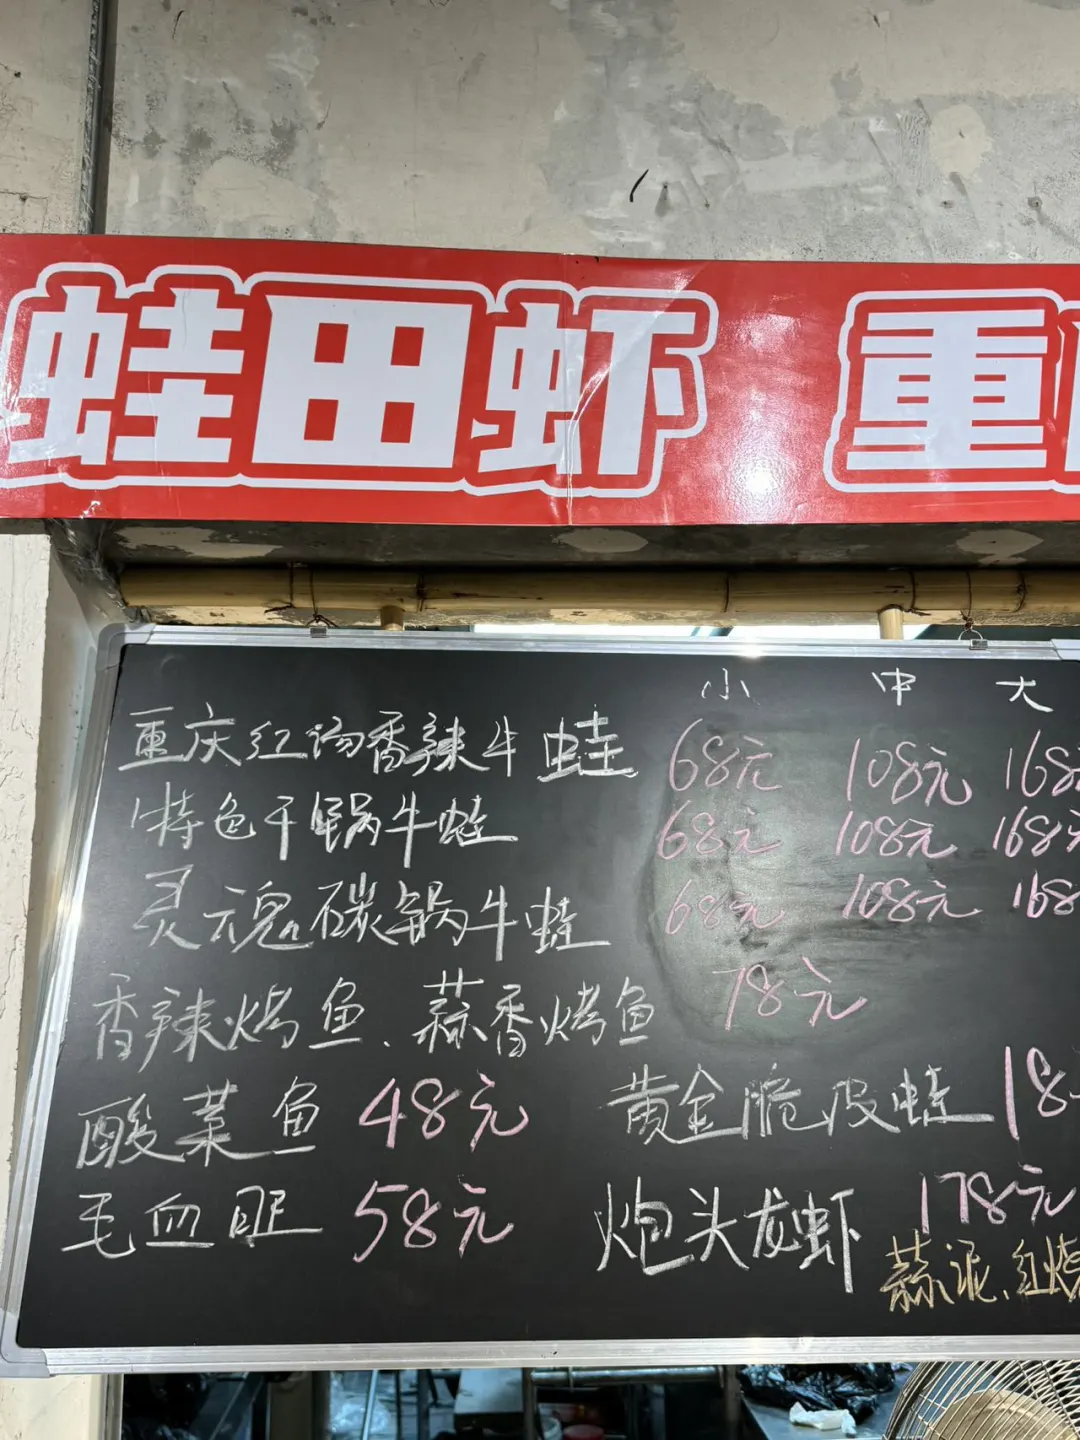 蛙田虾 重
小 中 大
重庆红汤香辣牛蛙 68元 108元 168
特色干锅牛蛙 68元 108元 168元
灵魂碳锅牛蛙 68元 108元 168
香辣烤鱼、蒜香烤鱼 78元
酸菜鱼 48元 黄金脆皮蛙 18
毛血旺 58元 炮头龙虾 178元
蒜泥、红烧